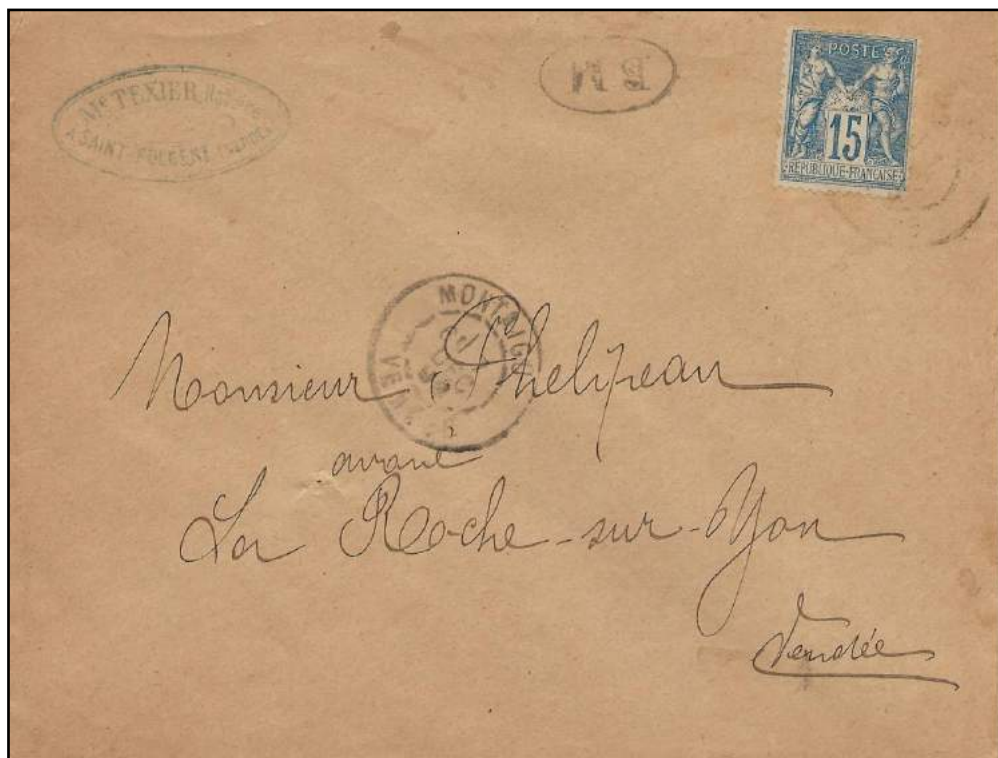 Me TEXIER
A SAINT-FULGENT
B M
POSTE
15
REPUBLIQUE-FRANÇAISE
MONTAIGU
Monsieur Phelipeau
avoué
La Roche-sur-Yon
Vendée